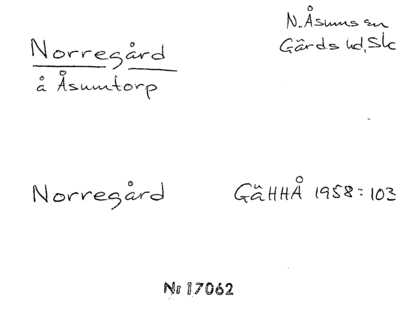 Norregård
å Åsumtorp
N. Åsums sn
Gärds hd, Sk
Norregård
GäHHÅ 1958:103
Nr 17062